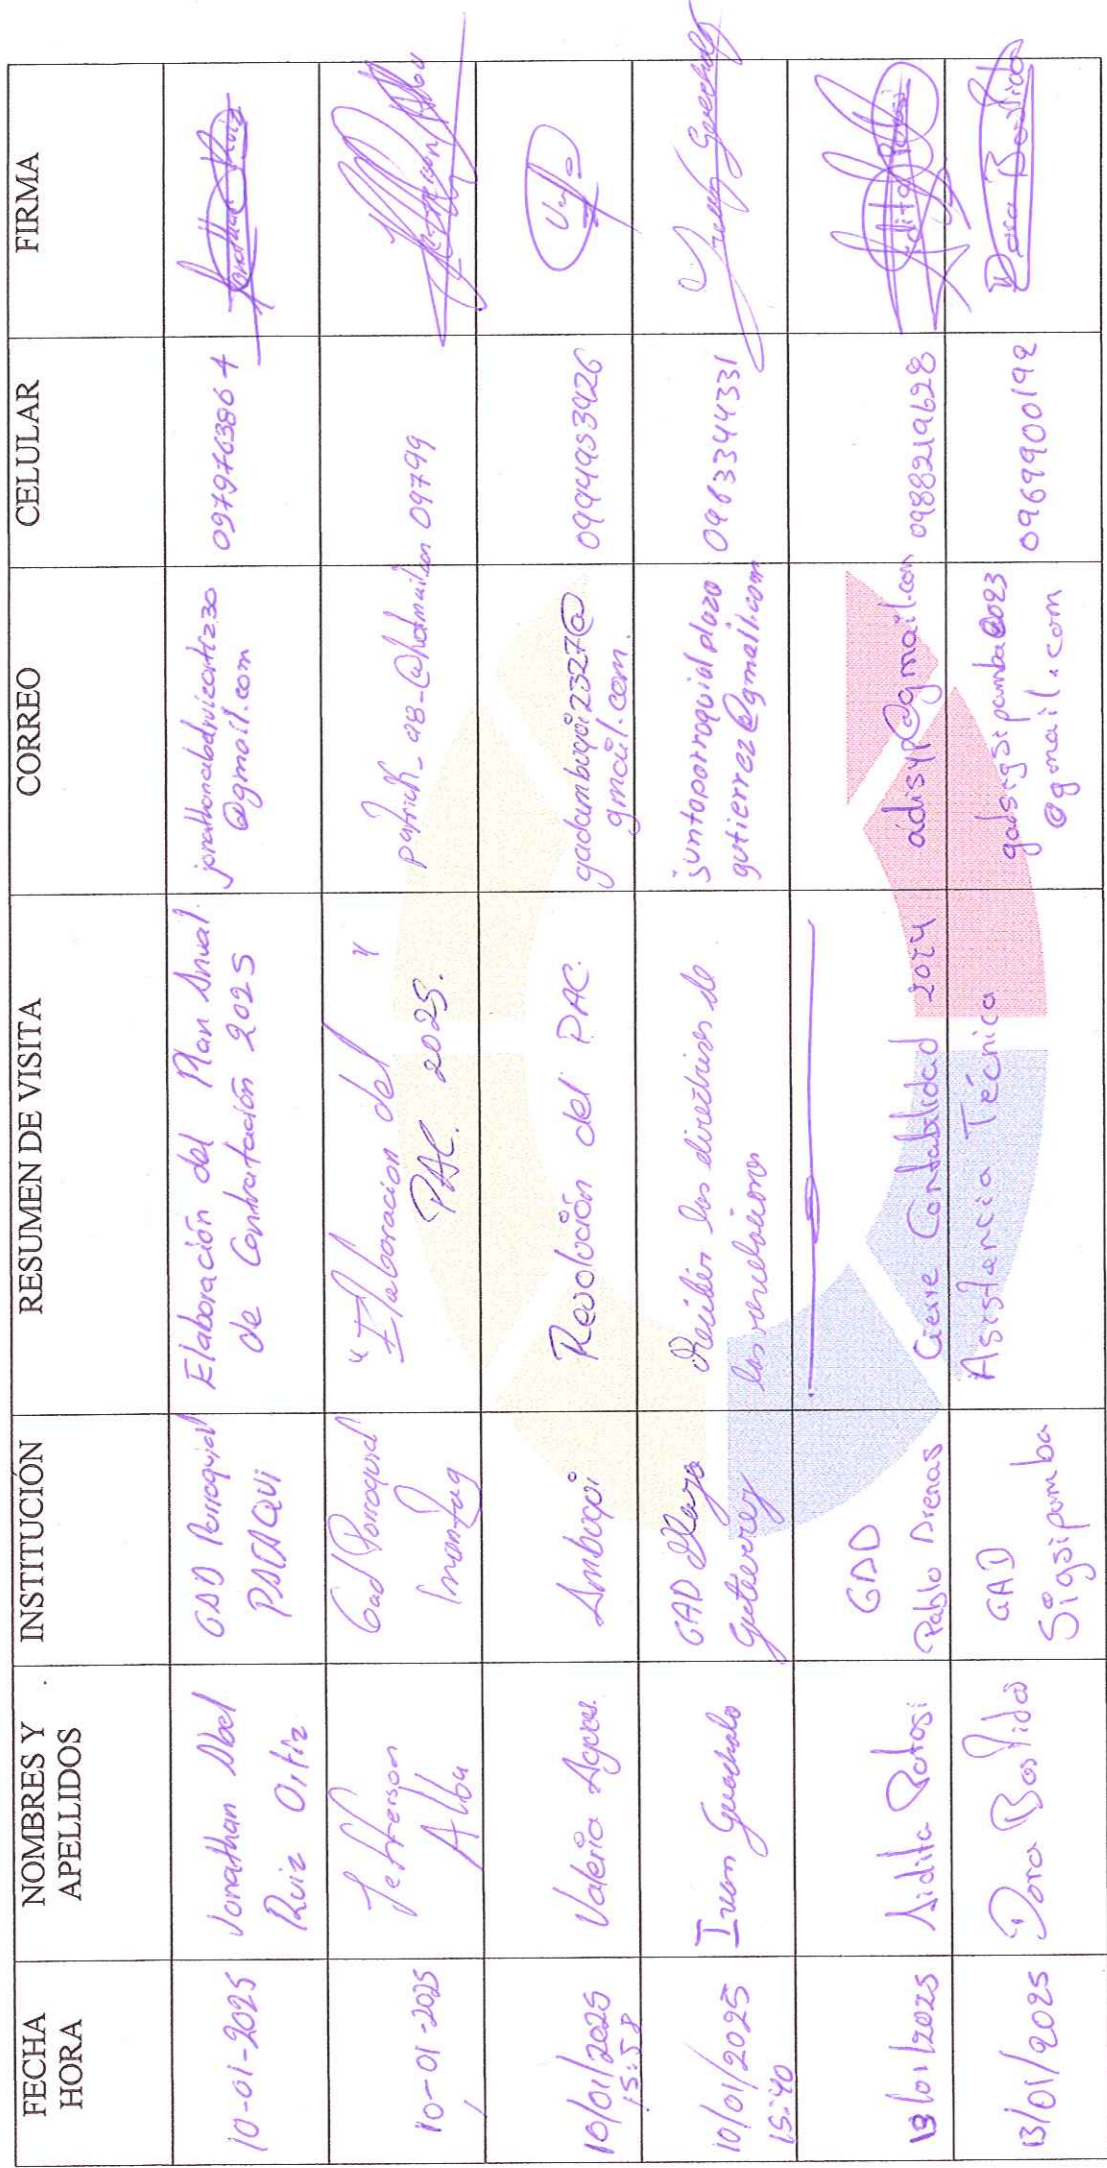 FECHA HORA
NOMBRES Y APELLIDOS
INSTITUCIÓN
RESUMEN DE VISITA
CORREO
CELULAR
FIRMA
10-01-2025
Jonathan Abel
Ruiz Ortiz
GAD Parroquial
PATAQUI
Elaboración del Plan Anual
de Contratación 2025
@gmail.com
0979763864
10-01-2025
Jefferson
Alba
Gad Parroquial
Imantag
"Elaboracion del "
PAC. 2025.
09799
10/01/2025
15:58
Valeria
Ambuquí
Resolución del PAC.
gadambuqui2327@
gmail.com.
0994953926
10/01/2025
15:40
Ivan Guachala
GAD Plaza
Gutierrez
Recibir las directrices de
juntaparroquialplaza
gutierrez@gmail.com
0963344331
13/01/2025
Aidita Potosi
GAD
Pablo Arenas
Cierre Contabilidad 2024
adisyp@gmail.com
0988219628
13/01/2025
Dora Bastidas
GAD
Sigsipamba
Asistencia Técnica
gadsigsipamba2023
@gmail.com
0969900192